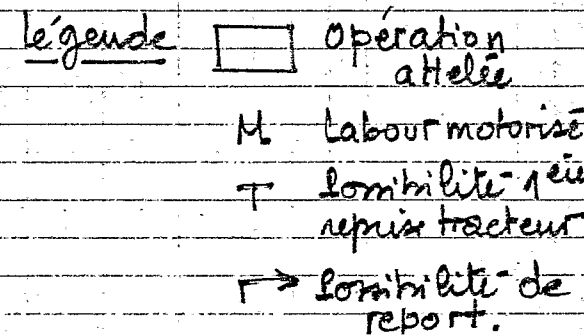 légende Opération
attelée
M. Labour motorisé
T Possibilité 1ère
reprise tracteur
Possibilité de
report.